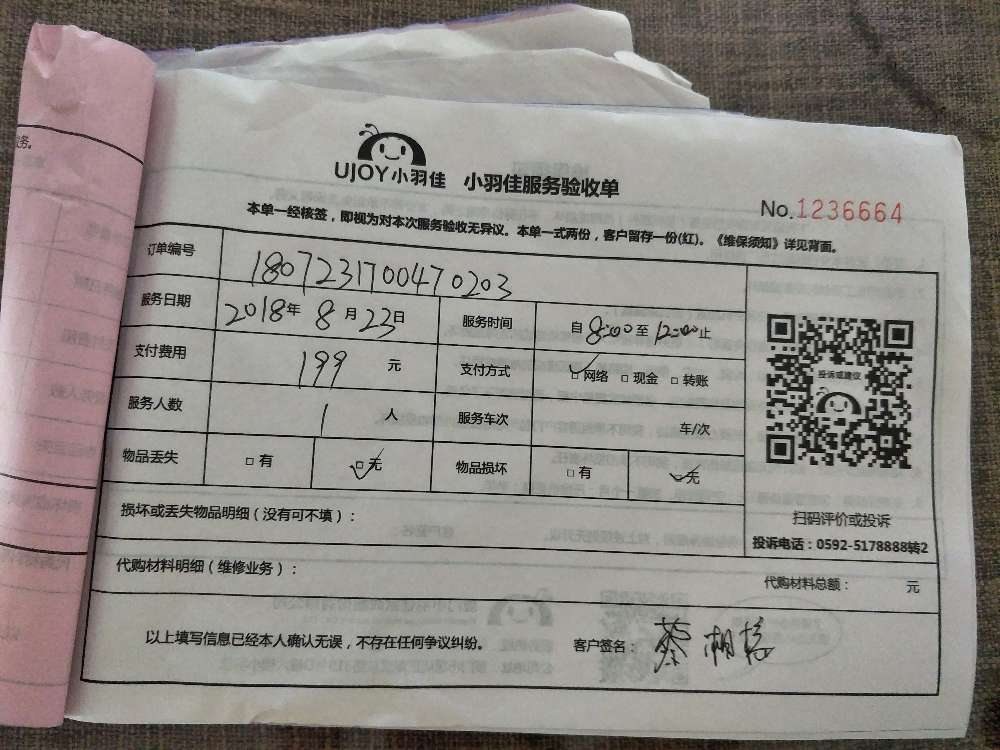 UJOY小羽佳 小羽佳服务验收单
No.1236664
本单一经核签，即视为对本次服务验收无异议。本单一式两份，客户留存一份(红)。《维保须知》详见背面。
订单编号 180723170047 0203
服务日期 2018年 8 月 23日 服务时间 自 8:00 至 12:00 止
支付费用 199 元 支付方式 □网络 □现金 □转账
服务人数 1 人 服务车次 车/次
物品丢失 □有 □无 物品损坏 □有 □无
投诉或建议
扫码评价或投诉
投诉电话：0592-5178888转2
损坏或丢失物品明细（没有可不填）：
代购材料明细（维修业务）： 代购材料总额： 元
以上填写信息已经本人确认无误，不存在任何争议纠纷。 客户签名： 蔡相
务。